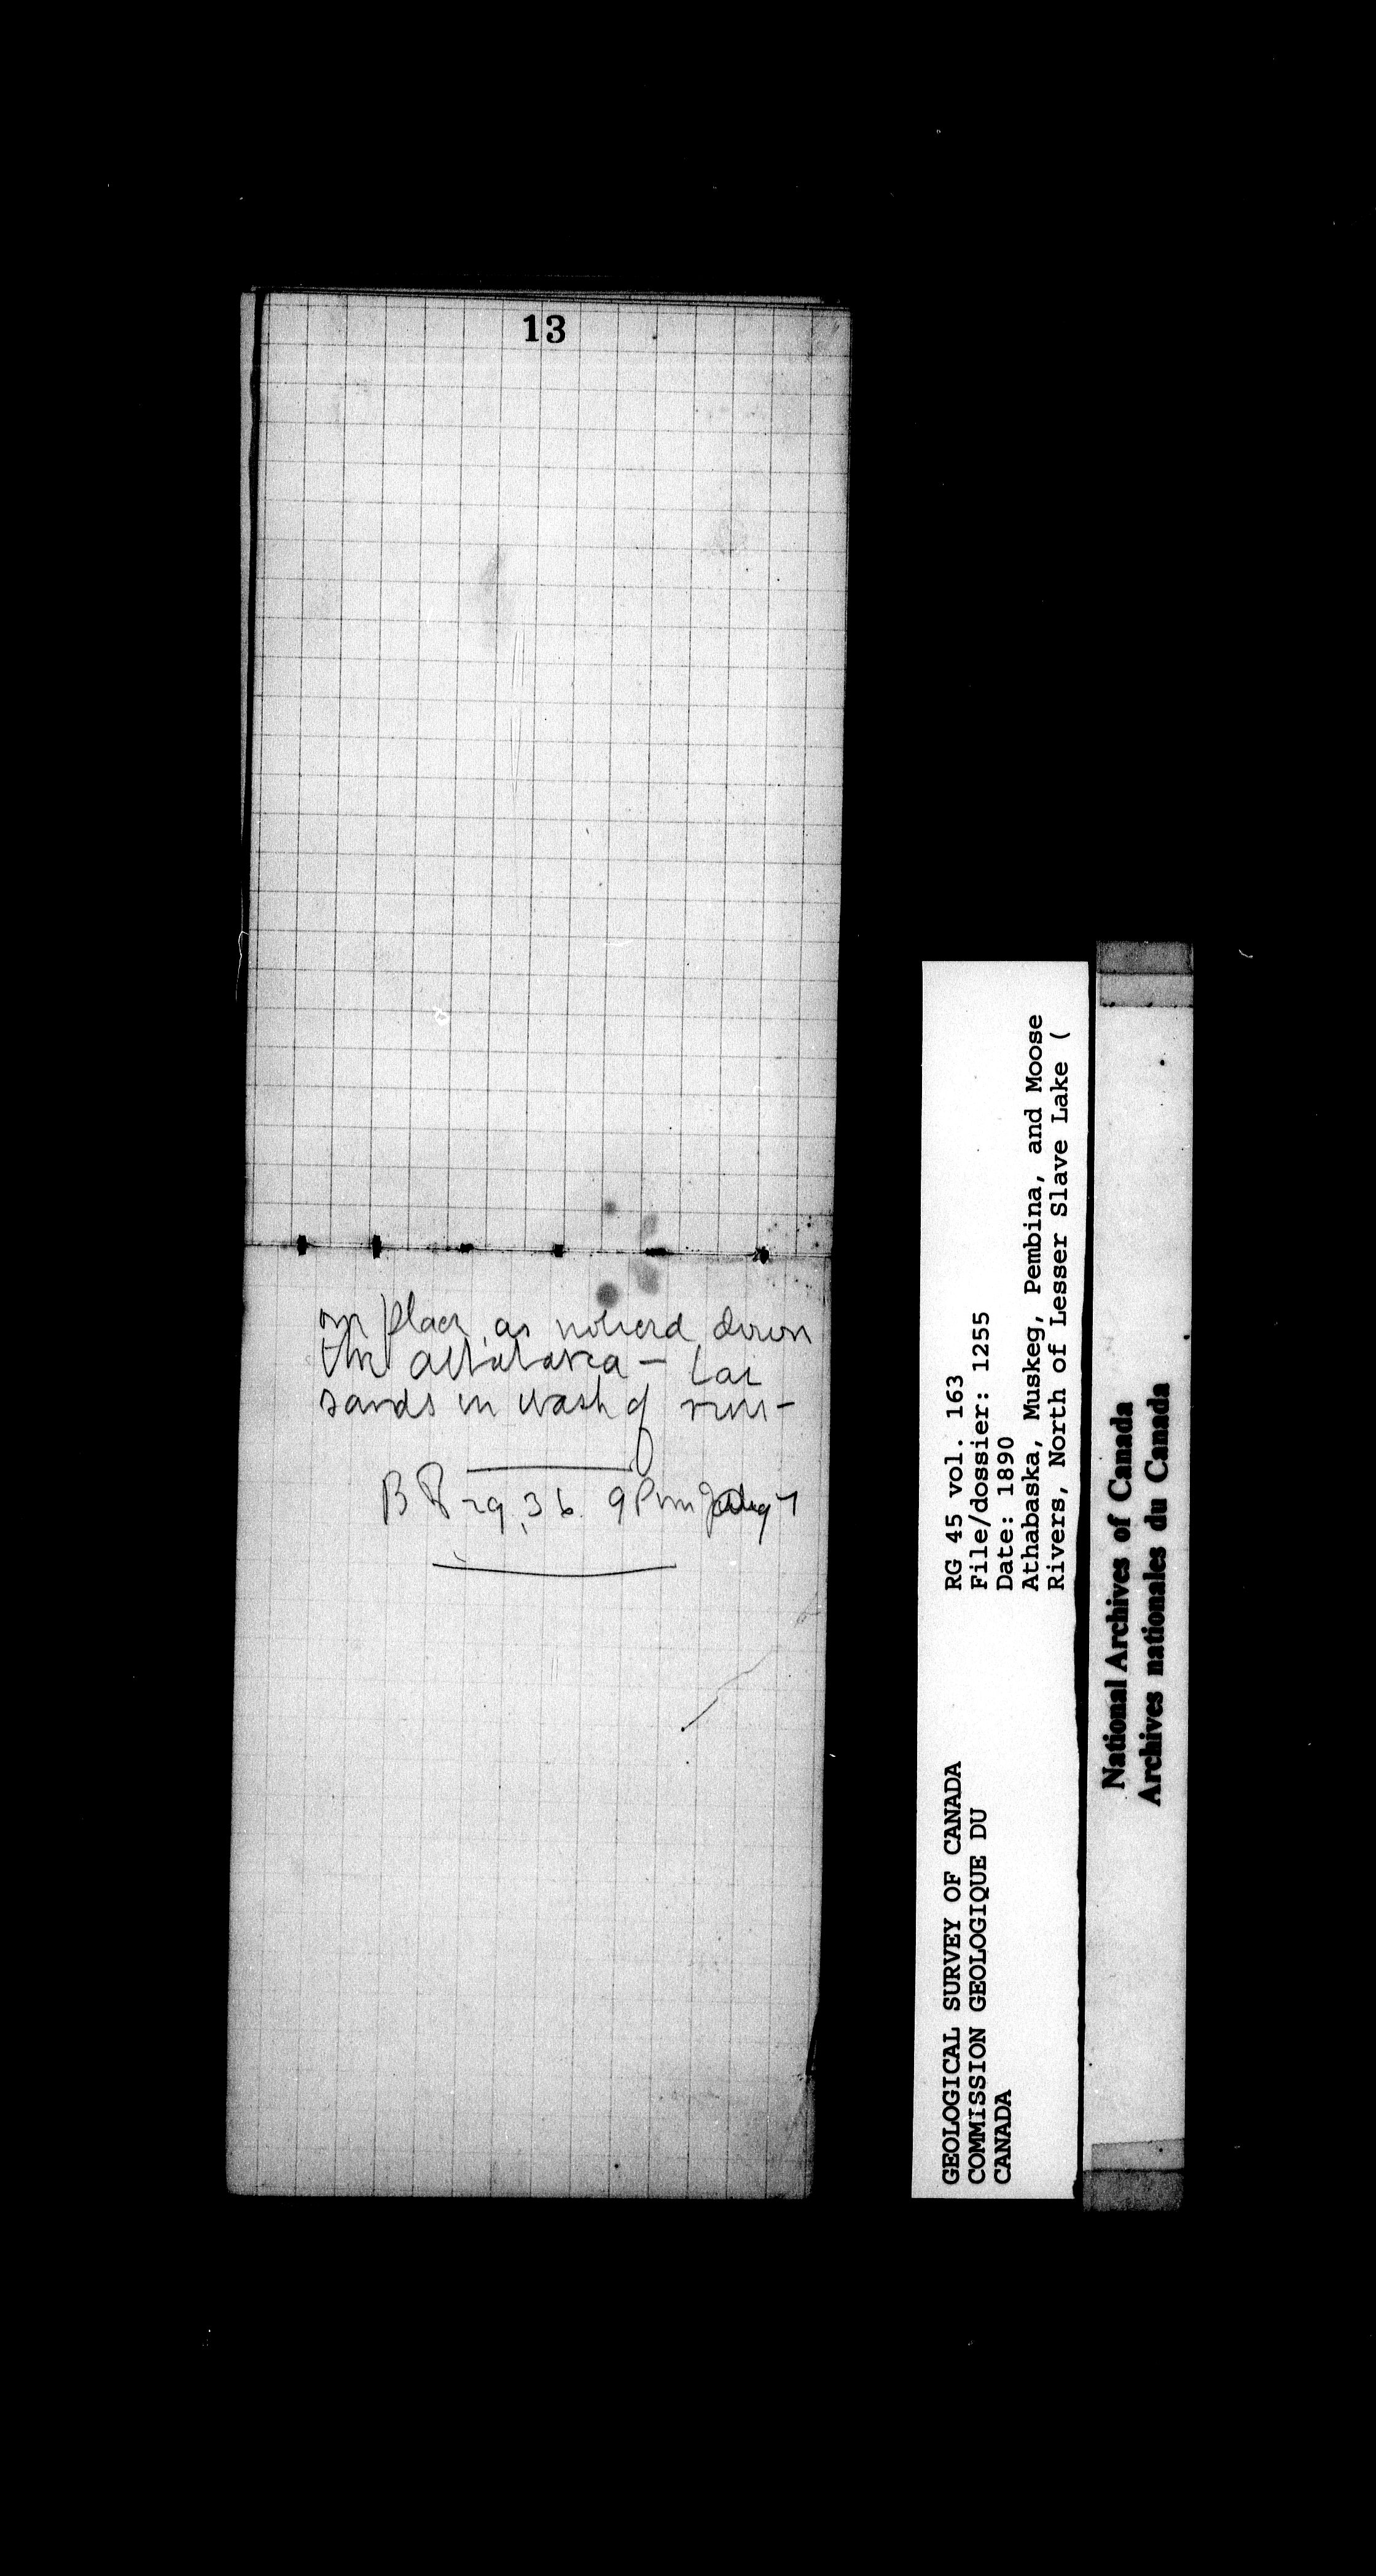 13
place as noticed down
the Athabasca — Tar
sands in wash of river —
B P 29.36. 9 Pm Aug
RG 45 vol. 163
File/dossier: 1255
Date: 1890
Athabaska, Muskeg, Pembina, and Moose
Rivers, North of Lesser Slave Lake (
GEOLOGICAL SURVEY OF CANADA
COMMISSION GEOLOGIQUE DU
CANADA
National Archives of Canada
Archives nationales du Canada